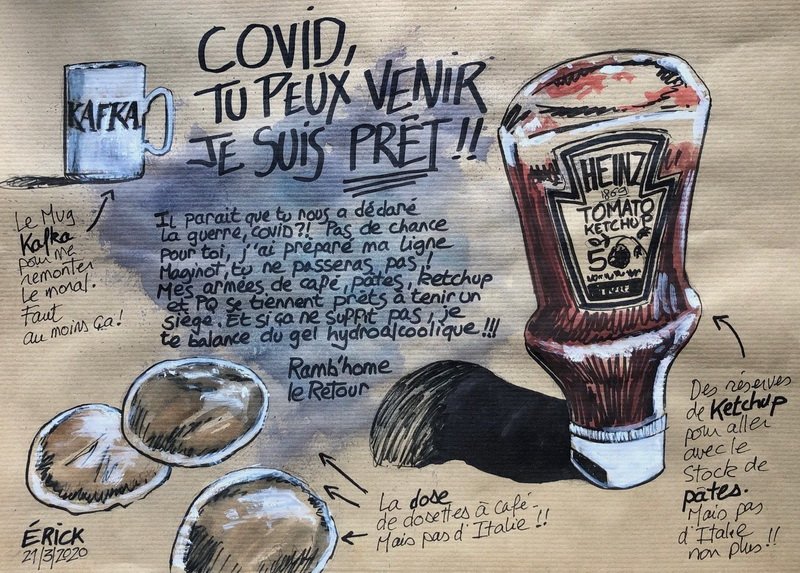 COVID,
TU PEUX VENIR
JE SUIS PRÊT !!
KAFKA
Le Mug
Kafka
pour me
remonter
le moral.
Faut
au moins ça !
Il parait que tu nous a déclaré
la guerre, COVID ?! Pas de chance
pour toi, j'ai préparé ma ligne
Maginot, tu ne passeras pas !
Mes armées de café, pâtes, ketchup
et PQ se tiennent prêts à tenir un
siège. Et si ça ne suffit pas, je
te balance du gel hydroalcoolique !!!
Ramb'home
le Retour
HEINZ
1869
TOMATO
KETCHUP
Des réserves
de Ketchup
pour aller
avec le
Stock de
pâtes.
Mais pas
d'Italie
non plus !!
La dose
de dosettes à café.
Mais pas d'Italie !!
ÉRICK
21/3/2020